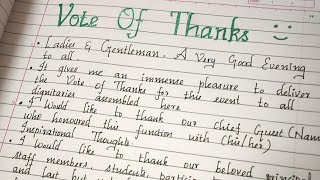 Vote Of Thanks :)
• Ladies & Gentleman. A Very Good Evening
to all.
• It gives me an immense pleasure to deliver
the Vote of Thanks for this event to all
dignitaries assembled here.
• I Would like to thank our chief Guest (Name)
who honoured this function with (his/her)
Inspirational Thoughts.
• I would like to thank our beloved principal
staff members, students,
and last but